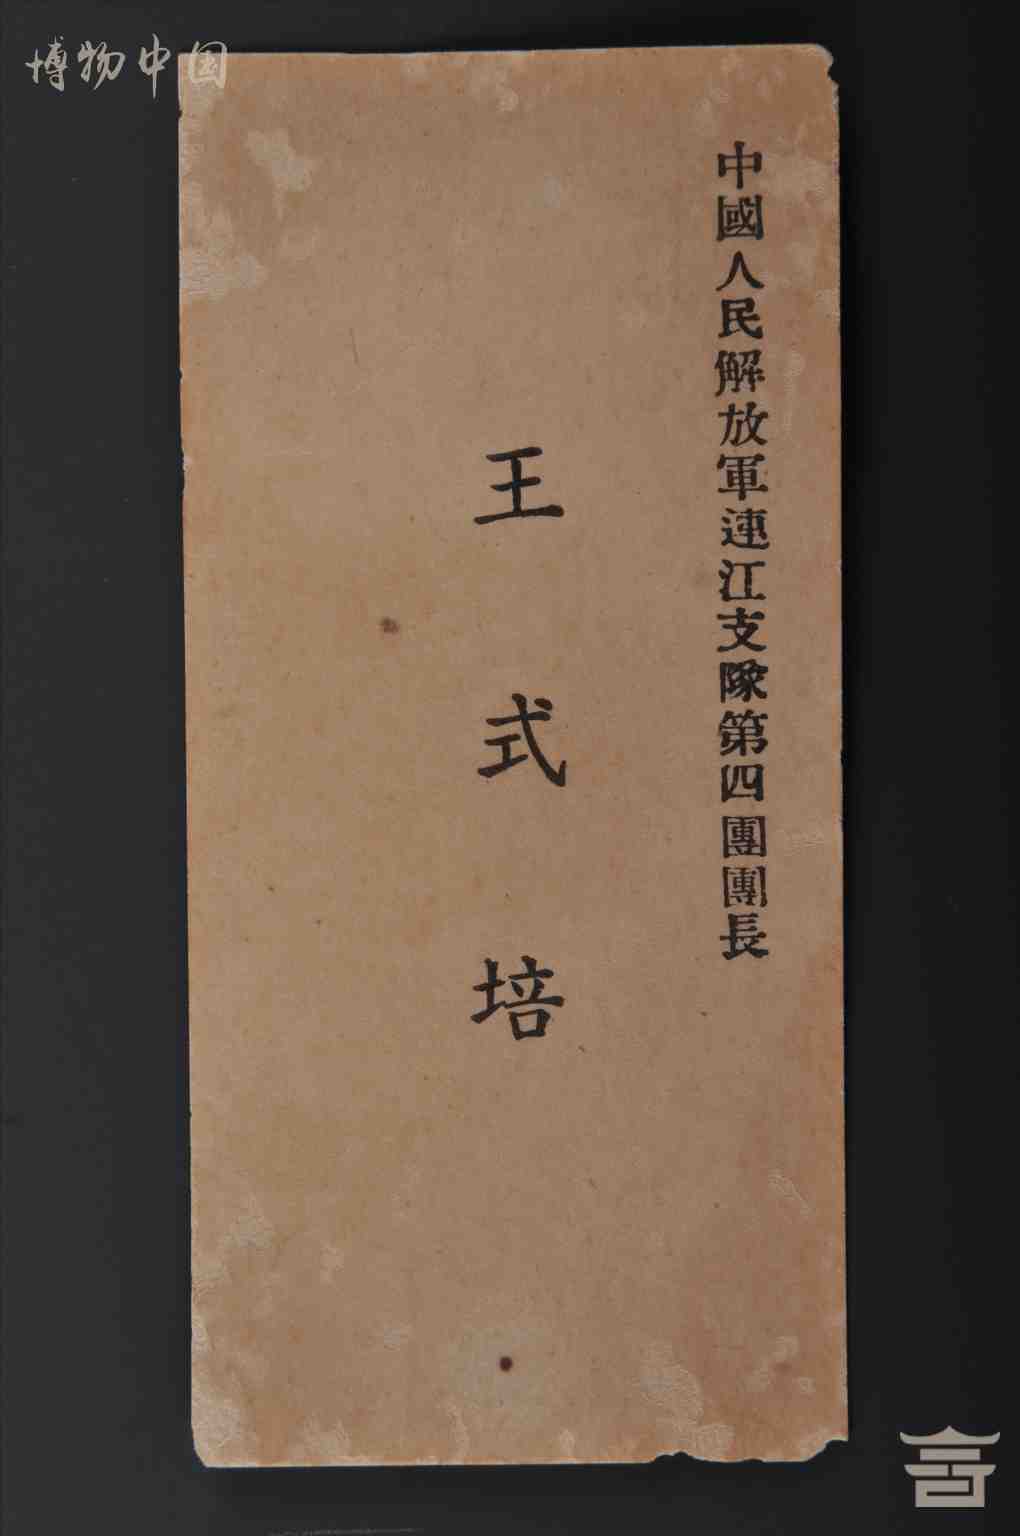 博物中国
中國人民解放軍連江支隊第四團團長
王式培